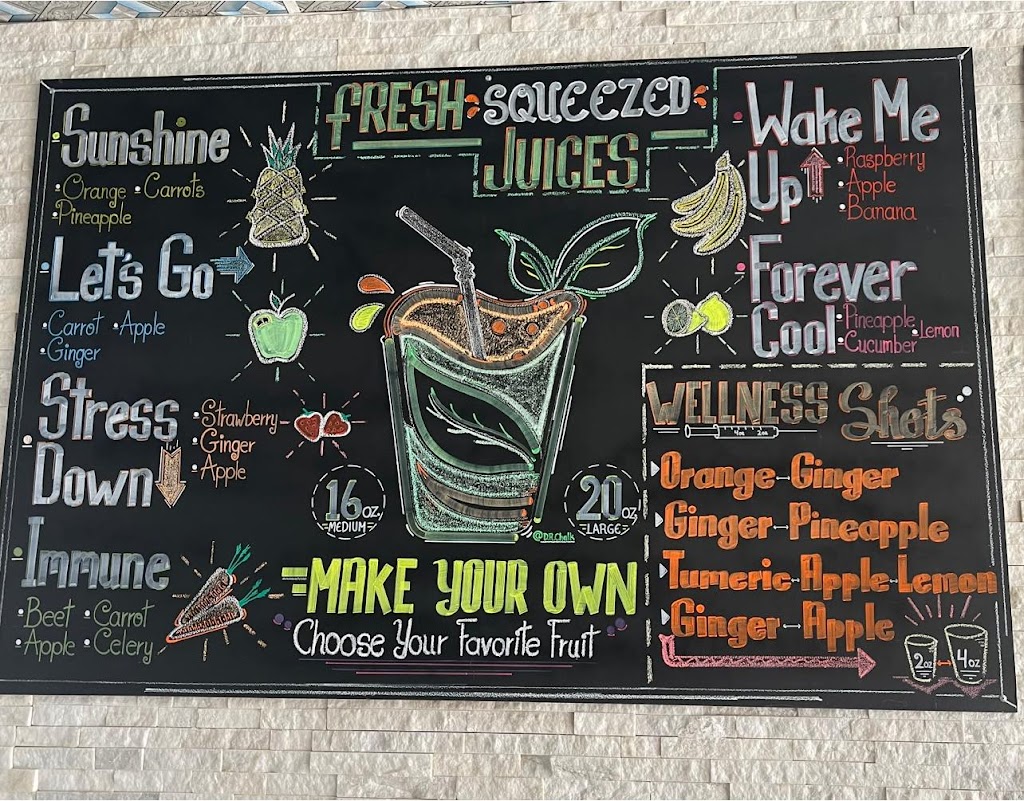 FRESH SQUEEZED
JUICES
Sunshine
Orange • Carrots
Pineapple
Let's Go
Carrot • Apple
Ginger
Stress
Down
Strawberry
Ginger
Apple
Immune
Beet • Carrot
Apple • Celery
16oz
MEDIUM
20oz
LARGE
@DR.Chalk
MAKE YOUR OWN
Choose Your Favorite Fruit
Wake Me
Up
Raspberry
Apple
Banana
Forever
Cool
Pineapple
Lemon
Cucumber
WELLNESS Shots
4oz 2oz
Orange-Ginger
Ginger-Pineapple
Tumeric-Apple-Lemon
Ginger-Apple
2oz 4oz